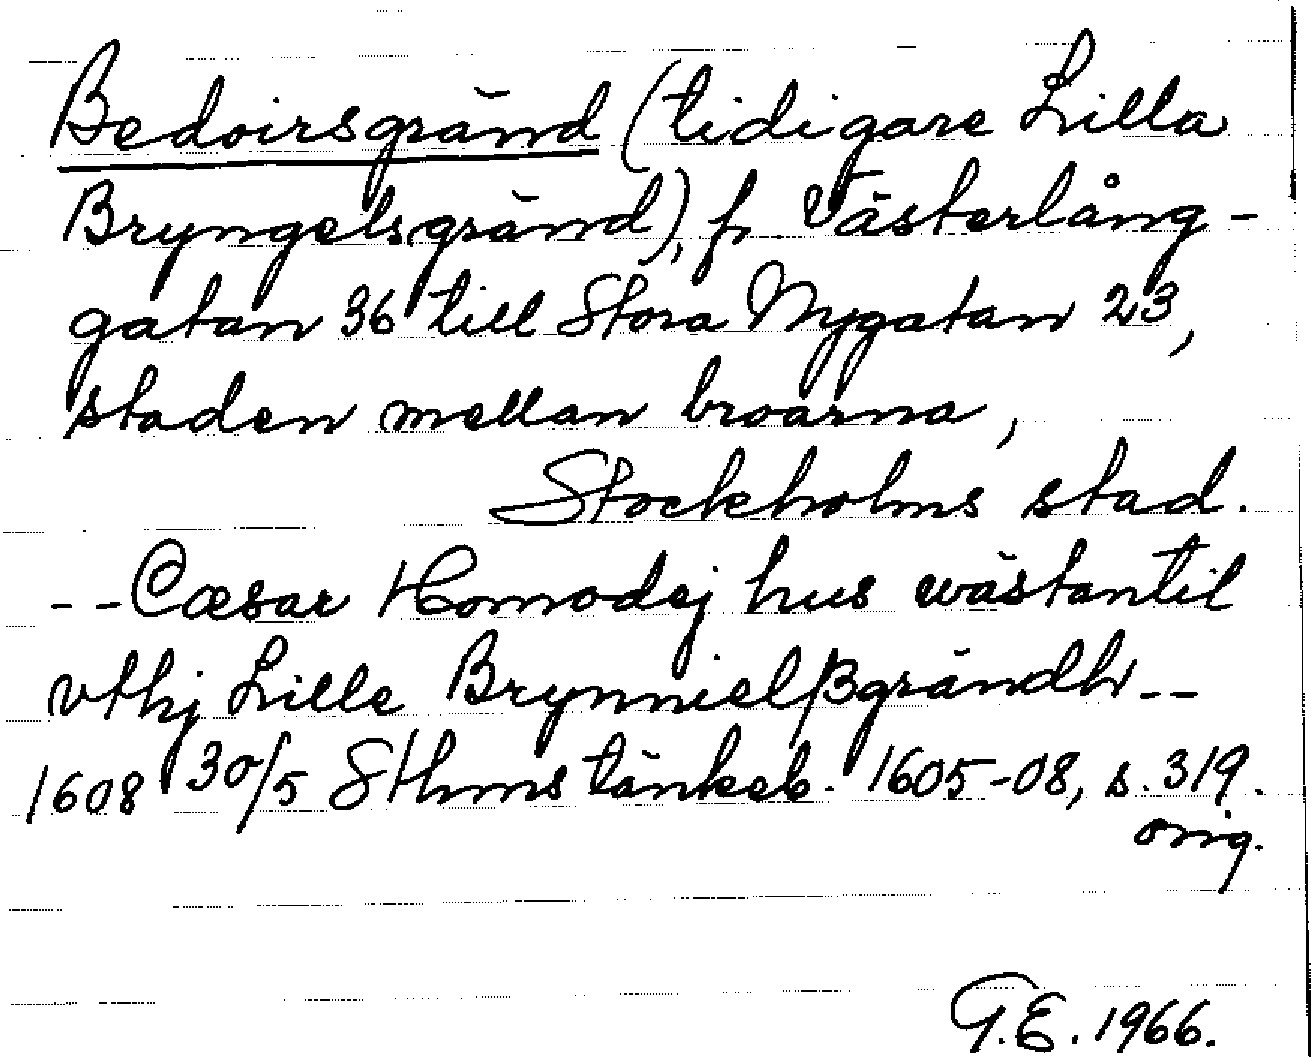 Bedoirsgränd (tidigare Lilla
Bryngelsgränd), fr Västerlång-
gatan 36 till Stora Nygatan 23,
staden mellan broarna,
Stockholms stad.
--Cæsar Homodej hus wästantil
vthj Lille Brynnielßgrändh--
1608 30/5 Sthms tänkeb. 1605-08, s. 319.
orig.
G.E. 1966.